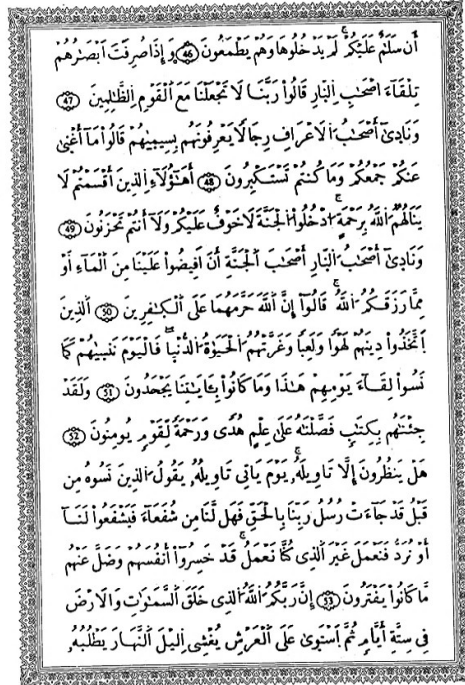 أَن سَلَٰمٌ عَلَيْكُمْ لَمْ يَدْخُلُوهَا وَهُمْ يَطْمَعُونَ 46 وَإِذَا صُرِفَتَ اَبْصَٰرُهُمْ
تِلْقَآءَ اَصْحَٰبِ اِ۬لنّ۪ارِ قَالُوا۟ رَبَّنَا لَا تَجْعَلْنَا مَعَ اَ۬لْقَوْمِ اِ۬لظَّٰلِمِينَ 47
وَنَادَىٰٓ أَصْحَٰبُ اُ۬لَاعْرَافِ رِجَالًا يَعْرِفُونَهُم بِسِيمَٰهُمْ قَالُوا۟ مَآ أَغْنَىٰ
عَنكُمْ جَمْعُكُمْ وَمَا كُنتُمْ تَسْتَكْبِرُونَ 48 أَهَٰٓؤُلَآءِ اِ۬لذِينَ أَقْسَمْتُمْ لَا
يَنَالُهُمُ اُ۬للَّهُ بِرَحْمَةٍ اُ۟دْخُلُوا۟ اُ۬لْجَنَّةَ لَا خَوْفٌ عَلَيْكُمْ وَلَآ أَنتُمْ تَحْزَنُونَ 49
وَنَادَىٰٓ أَصْحَٰبُ اُ۬لنّ۪ارِ أَصْحَٰبَ اَ۬لْجَنَّةِ أَنَ اَفِيضُوا۟ عَلَيْنَا مِنَ اَ۬لْمَآءِ اَ۬وْ
مِمَّا رَزَقَكُمُ اُ۬للَّهُ قَالُوٓا۟ إِنَّ اَ۬للَّهَ حَرَّمَهُمَا عَلَى اَ۬لْكٰ۪فِرِينَ 50 اَ۬لذِينَ
اَ۪تَّخَذُوا۟ دِينَهُمْ لَهْوًا وَلَعِبًا وَغَرَّتْهُمُ اُ۬لْحَيَوٰةُ اُ۬لدُّنْيَا فَالْيَوْمَ نَنسَىٰهُمْ كَمَا
نَسُوا۟ لِقَآءَ يَوْمِهِمْ هَٰذَا وَمَا كَانُوا۟ بِـَٔايَٰتِنَا يَجْحَدُونَ 51 وَلَقَدْ
جِئْنَٰهُم بِكِتَٰبٍ فَصَّلْنَٰهُ عَلَىٰ عِلْمٍ هُدًى وَرَحْمَةً لِّقَوْمٍ يُومِنُونَ 52
هَلْ يَنظُرُونَ إِلَّا تَاوِيلَهُۥ يَوْمَ يَاتِي تَاوِيلُهُۥ يَقُولُ اُ۬لذِينَ نَسُوهُ مِن
قَبْلُ قَدْ جَآءَتْ رُسُلُ رَبِّنَا بِالْحَقِّ فَهَل لَّنَا مِن شُفَعَآءَ فَيَشْفَعُوا۟ لَنَآ
أَوْ نُرَدُّ فَنَعْمَلَ غَيْرَ اَ۬لذِي كُنَّا نَعْمَلُ قَدْ خَسِرُوٓا۟ أَنفُسَهُمْ وَضَلَّ عَنْهُم
مَّا كَانُوا۟ يَفْتَرُونَ 53 إِنَّ رَبَّكُمُ اُ۬للَّهُ اُ۬لذِي خَلَقَ اَ۬لسَّمَٰوَٰتِ وَالَارْضَ
فِي سِتَّةِ أَيَّامٍ ثُمَّ اَ۪سْتَوَىٰ عَلَى اَ۬لْعَرْشِ يُغْشِي اِ۬ليْلَ اَ۬لنَّهَارَ يَطْلُبُهُۥ